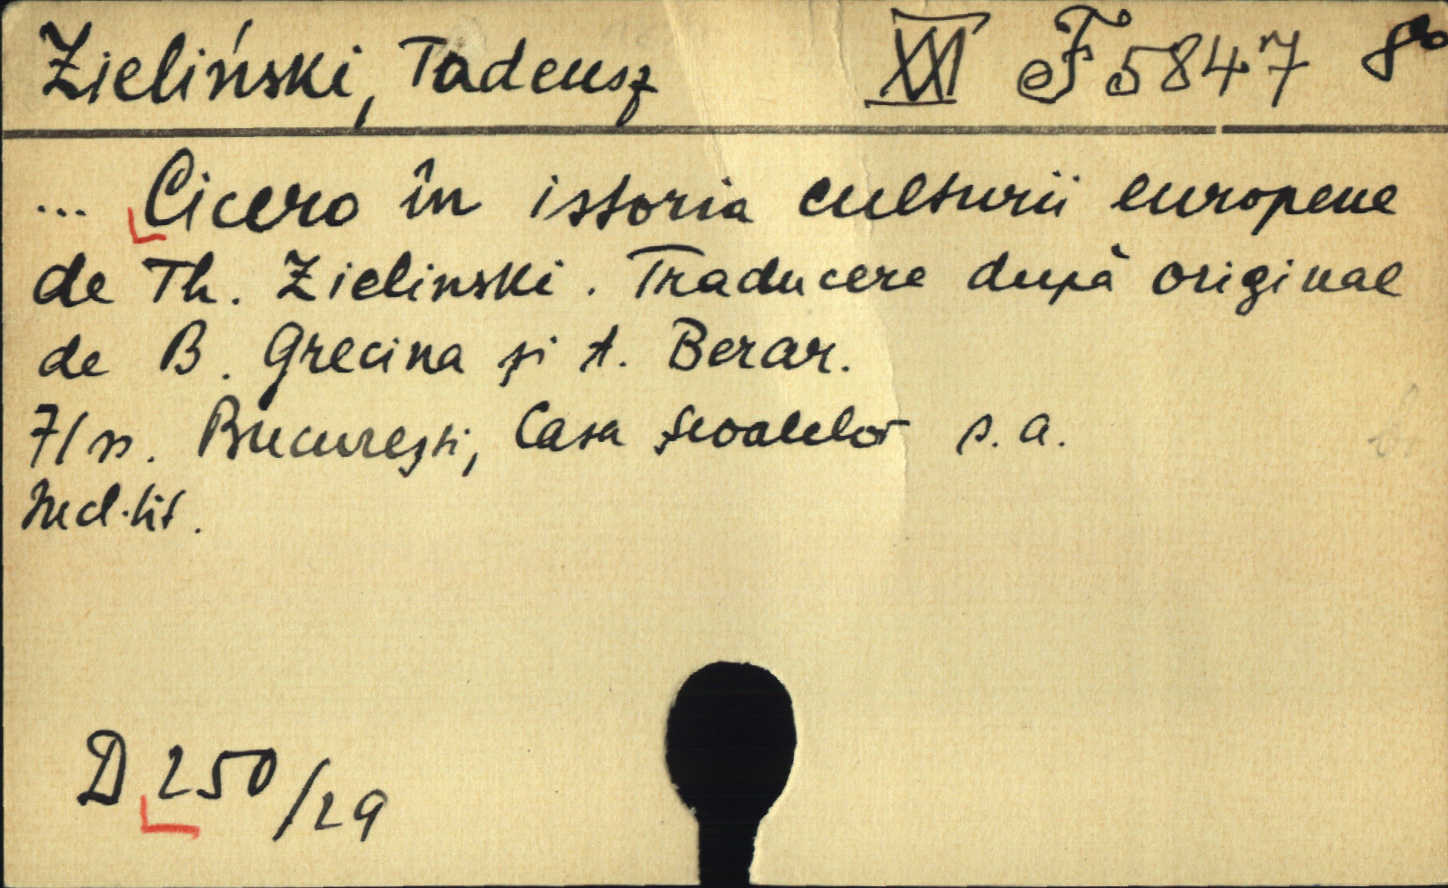 Zieliński, Tadeusz XXI F 5847 8°
... Cicero în istoria culturii europene
de Th. Zielinski. Traducere după original
de B. Grecina și A. Berar.
București, Casa Școalelor s.a.
D 250/29